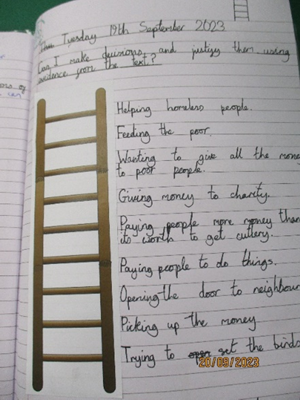 Tuesday 19th September 2023
Can I make decisions and justify them using
evidence from the text?
Helping homeless people.
Feeding the poor.
Wanting to give all the money
to poor people.
Giving money to charity.
Paying people more money than
its worth to get cutlery.
Paying people to do things.
Opening the door to neighbour
Picking up the money
Trying to set the birds
20/09/2023